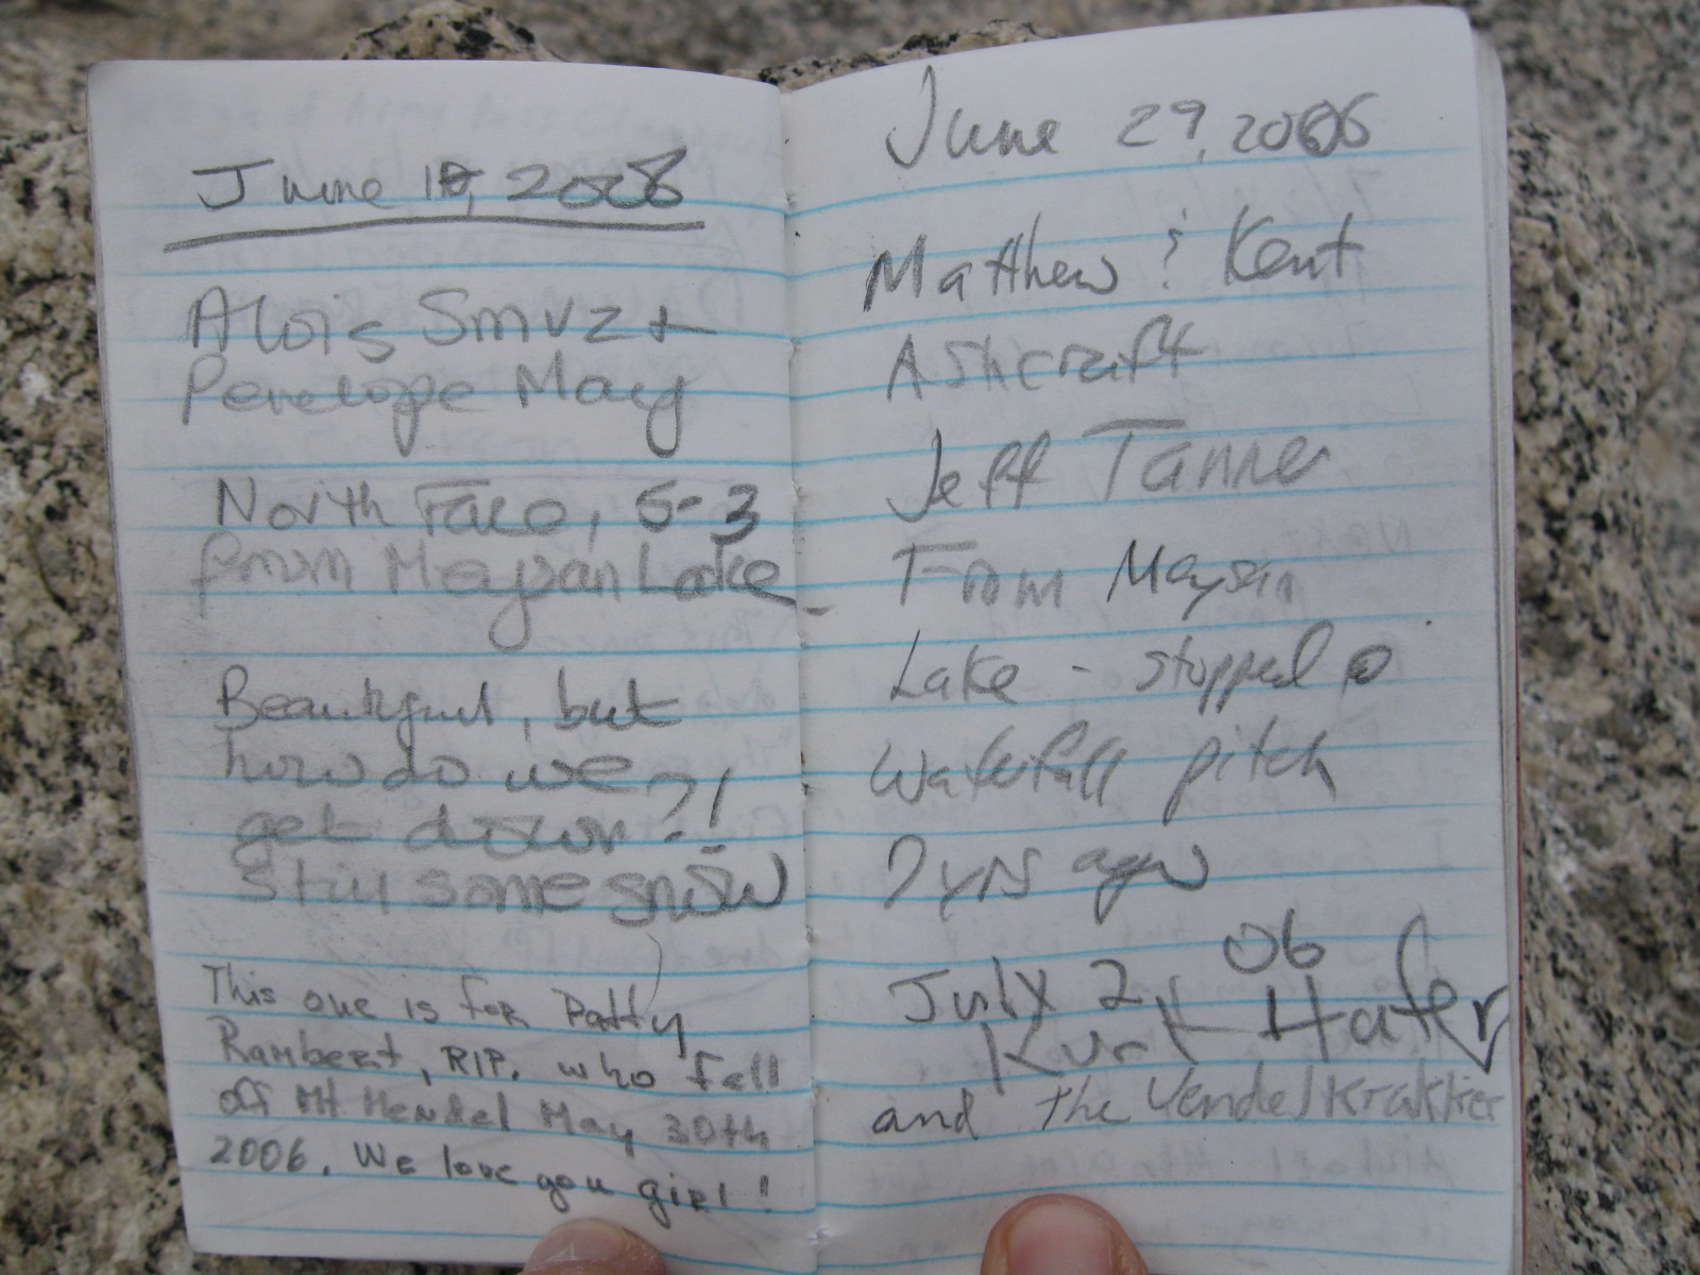 June 18, 2006
Alois Smrz +
Penelope May
North Face, 5-3
from Meysan Lake
Beautiful, but
how do we
get down?!
Still some snow
This one is for Patty
Rambert, RIP. who fell
off Mt Mendel May 30th
2006. We love you girl!
June 29, 2006
Matthew & Kent
Ashcraft
Jeff Tanner
From Maysan
Lake - stopped @
Waterfall pitch
2 yrs ago
July 2 06
Kurt Hafer
and the Vendelkrakker